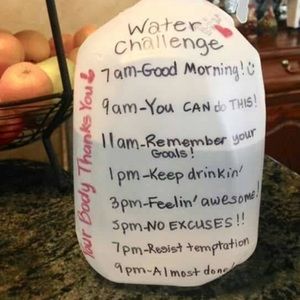 Water
Challenge
7am-Good Morning!
9am-You CAN do THIS!
11am-Remember your
Goals!
1pm-Keep drinkin'
3pm-Feelin' awesome!
5pm-NO EXCUSES!!
7pm-Resist temptation
9pm-Almost done!
Your Body Thanks You